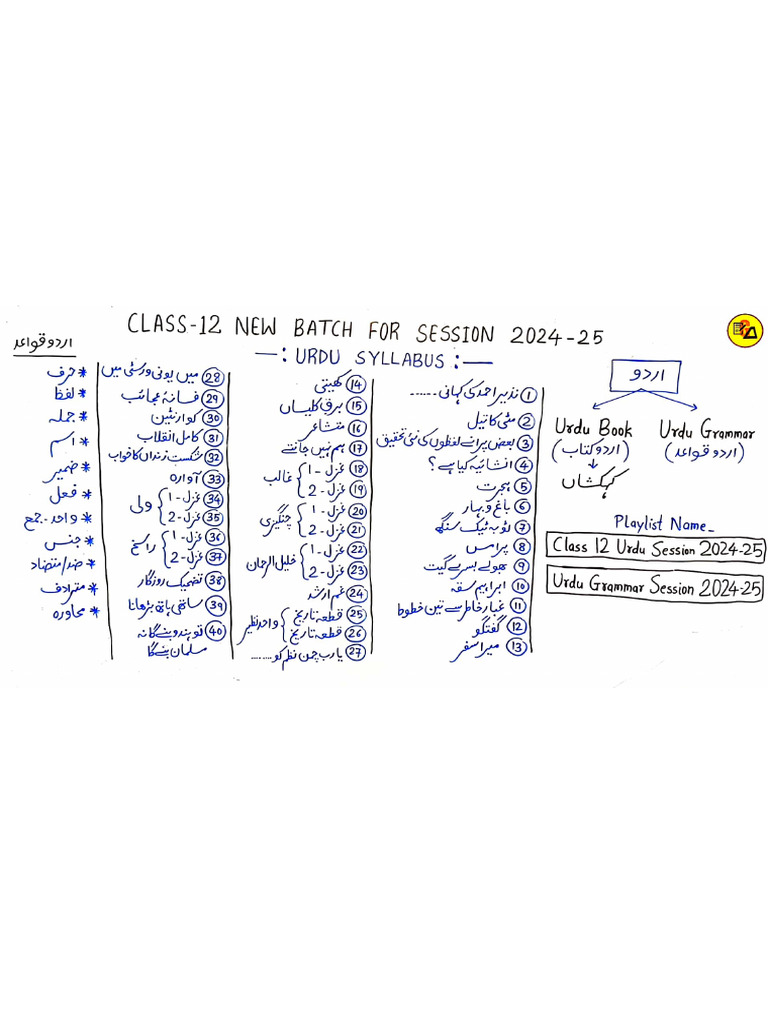 CLASS-12 NEW BATCH FOR SESSION 2024-25
—: URDU SYLLABUS :—
اردو
Urdu Book
(اردو کتاب)
کہکشاں
Urdu Grammar
(اردو قواعد)
Playlist Name_
Class 12 Urdu Session 2024-25
Urdu Grammar Session 2024-25
1 نذیر احمد کی کہانی.......
2 مٹی کا تیل
3 بعض پرانے لفظوں کی نئی تحقیق
4 انشائیہ کیا ہے؟
5 ہجرت
6 باغ و بہار
7 ٹوبہ ٹیک سنگھ
8 پرامس
9 بھولے بسرے گیت
10 ابراہیم سقہ
11 غبار خاطر سے تین خطوط
12 گفتگو
13 میرا سفر
14 کھیتی
15 برق کلیساں
16 متشاعر
17 ہم نہیں جانتے
18 غزل - 1
19 غزل - 2
غالب
20 غزل - 1
21 غزل - 2
چنگیزی
22 غزل - 1
23 غزل - 2
خلیل الرحمان
24 غم ارشد
25 قطعہ تاریخ
26 قطعہ تاریخ
واحد نظیر
27 یارب چمن نظم کو.......
28 میں یونی ورسٹی میں
29 فسانۂ عجائب
30 کوارنٹین
31 کامل انقلاب
32 شکست زنداں کا خواب
33 آوارہ
34 غزل - 1
35 غزل - 2
ولی
36 غزل - 1
37 غزل - 2
راسخ
38 تضحیک روزگار
39 ساتھی ہاتھ بڑھانا
40 تو ہندو بنے گا نہ
مسلمان بنے گا
اردو قواعد
* حرف
* لفظ
* جملہ
* اسم
* ضمیر
* فعل
* واحد - جمع
* جنس
* ضد/متضاد
* مترادف
* محاورہ